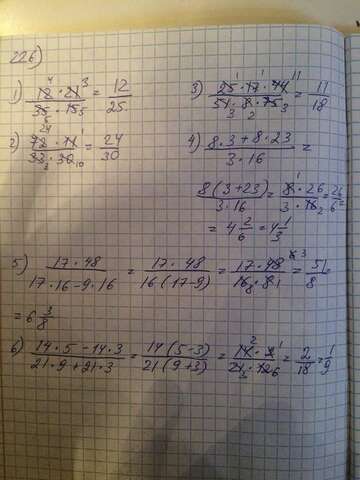 226)
1) (12 · 21)/(35 · 15) = 12/25
2) (72 · 11)/(33 · 30) = 24/30
3) (25 · 17 · 44)/(51 · 8 · 75) = 11/18
4) (8·3+8·23)/(3·16) =
(8(3+23))/(3·16) = (8·26)/(3·16) = 26/6 =
= 4 2/6 = 4 1/3
5) (17·48)/(17·16-9·16) = (17·48)/(16(17-9)) = (17·48)/(16·8) = 51/8
= 6 3/8
6) (14·5-14·3)/(21·9+21·3) = (14(5-3))/(21(9+3)) = (14·2)/(21·12) = 2/18 = 1/9